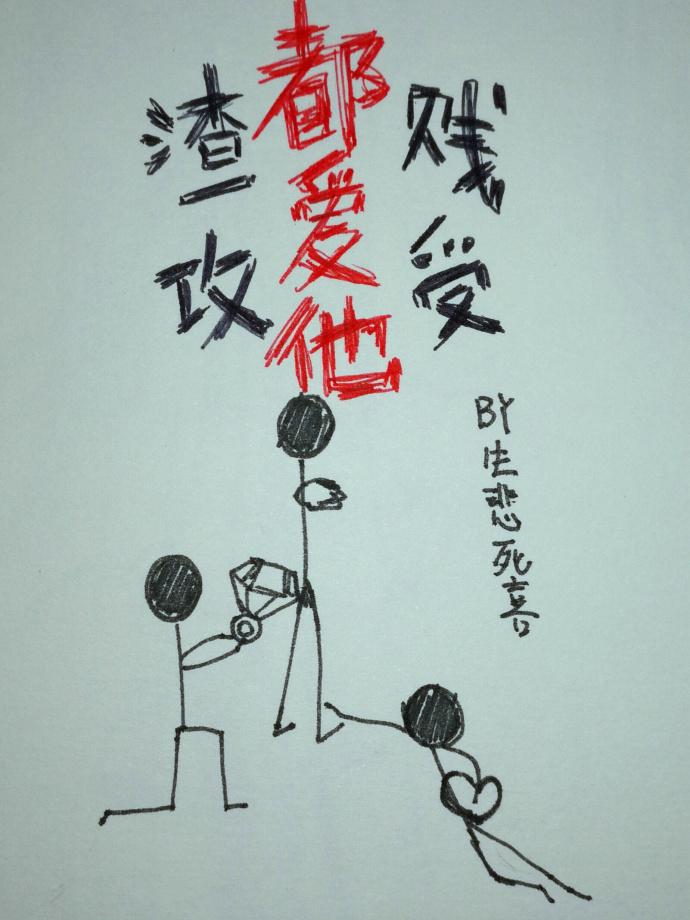 渣攻
都爱他
贱受
BY生悲死喜